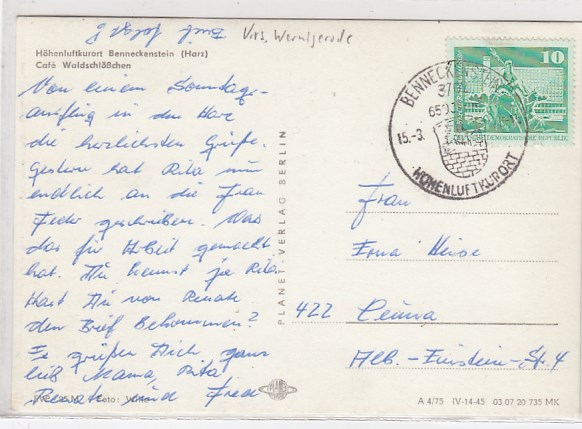 Krs. Wernigerode
Höhenluftkurort Benneckenstein (Harz)
Café Waldschlößchen
Von einem Sonntags-
ausflug in den Harz
die herzlichsten Grüße.
Gestern hat Rita nun
endlich an die Frau
geschrieben. Was
das für Arbeit gemacht
hat. Du kennst ja Rita.
Hast Du von Renate
den Brief bekommen?
Es grüßen Dich, ganz
lieb Mama, Rita
und Fred
PLANET-VERLAG BERLIN
10
DEUTSCHE DEMOKRATISCHE REPUBLIK
BENNECKENSTEIN
37
15.-3.
HÖHENLUFTKURORT
Frau
Erna
422 Leuna
Alb.-Einstein-Str. 4
A 4/75 IV-14-45 03 07 20 735 MK